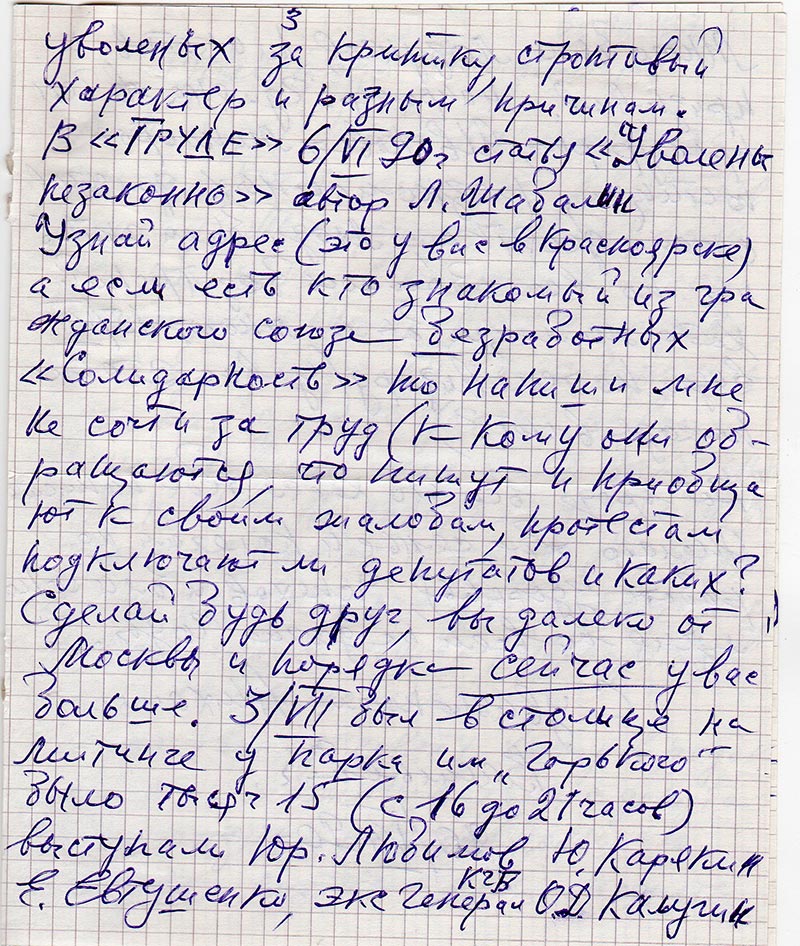 3
уволеных за критику, строптивый
характер и разным причинам.
В «ТРУДЕ» 6/VI 90г статья «Уволены
незаконно» автор Л. Шабалин
Узнай адрес (это у вас в Красноярске)
а если есть кто знакомый из гра
жданского союза безработных
«Солидарность» то напиши мне
не сочти за труд (к кому они об-
ращаются, что пишут и приобща
ют к своим жалобам, протестам
подключают ли депутатов и каких?
Сделай будь друг, вы далеко от
Москвы и порядка сейчас у вас
больше. 3/VII был в столице на
митинге у парка им „Горького"
было тысяч 15 (с 16 до 21 часов)
выступали Юр. Любимов, Ю. Карякин
Е. Евтушенко, экс генерал КГБ О.Д. Калугин